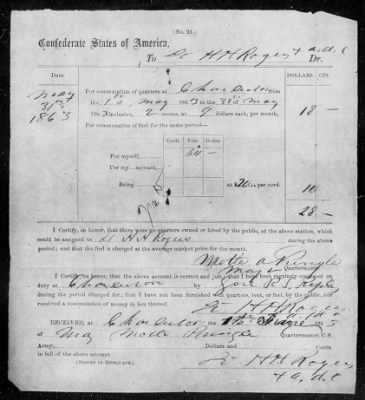 (No. 21.)
Confederate States of America,
To Lt H H Rogers + a.d.c
Dr.
Date.
DOLLARS
CTS
May
31st
1863
For commutation of quarters at Charleston
from the 1st May 1863 to 31st May
1863 inclusive, 2 rooms, at 9 dollars each, per month,
18 —
For commutation of fuel for the same period:—
Cords.
Feet.
For myself,
For my servant,
Being
at 20 per cord.
10
28 —
I Certify, on honor, that there were no quarters owned or hired by the public, at the above station, which
could be assigned to Lt H H Rogers during the above
period; and that the fuel is charged at the average market price for the month.
Motte A Pringle
Maj
Quartermaster.
I Certify, on honor, that the above account is correct and just; that I have been regularly stationed on
duty at Charleston by Genl R. S. Ripley
during the period charged for; that I have not been furnished with quarters, tent, or fuel, by the public, nor
received a commutation of money in lieu thereof.
Lt H H Rogers
a.d.c
Received, at Charleston 1863
of Maj Motte Pringle Quartermaster, C.S.
Army, Dollars and Cents,
in full of the above account.
(Signed in Duplicate.)
Lt H H Rogers
+ a.d.c